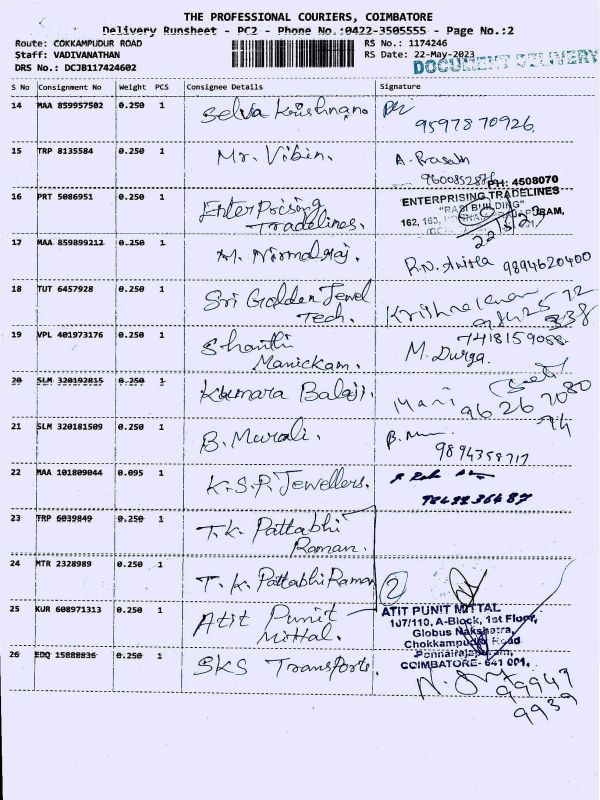 THE PROFESSIONAL COURIERS, COIMBATORE
Delivery Runsheet - PC2 - Phone No.:0422-3505555 - Page No.:2
Route: COKKAMPUDUR ROAD
RS No.: 1174246
Staff: VADIVANATHAN
RS Date: 22-May-2023
DOCUMENT DELIVERY
DRS No.: DCJB117424602
S No Consignment No Weight PCS Consignee Details Signature
14 MAA 859957502 0.250 1 Selva Krishnan
9597870926
15 TRP 8135584 0.250 1 Mr. Vibin. A. Prasath
PH: 4508070
16 PRT 5086951 0.250 1 Enterprising Tradelines.
ENTERPRISING TRADELINES
"RASI BUILDING"
22/5/23
17 MAA 859899212 0.250 1 M. Nirmalraj. 9894620400
18 TUT 6457928 0.250 1 Sri Golden Jewel Tech.
19 VPL 401973176 0.250 1 Shanthi Manickam. M. Durga.
7418159088
20 SLM 320192815 0.250 1 Kumara Balaji. Mani
21 SLM 320181509 0.250 1 B. Murali.
9894358717
22 MAA 101809044 0.095 1 K.S.P. Jewellers.
23 TRP 6039849 0.250 1 T.K. Pattabhi Raman.
24 MTR 2328989 0.250 1 T.K. Pattabhi Raman 2
25 KUR 608971313 0.250 1 Atit Punit Mittal.
ATIT PUNIT MITTAL
107/110, A-Block, 1st Floor,
Globus Nakshatra,
Chokkampudur Road
Ponnairajapuram,
COIMBATORE- 641 001.
26 EDQ 15888836 0.250 1 SKS Transports.
99947
9939